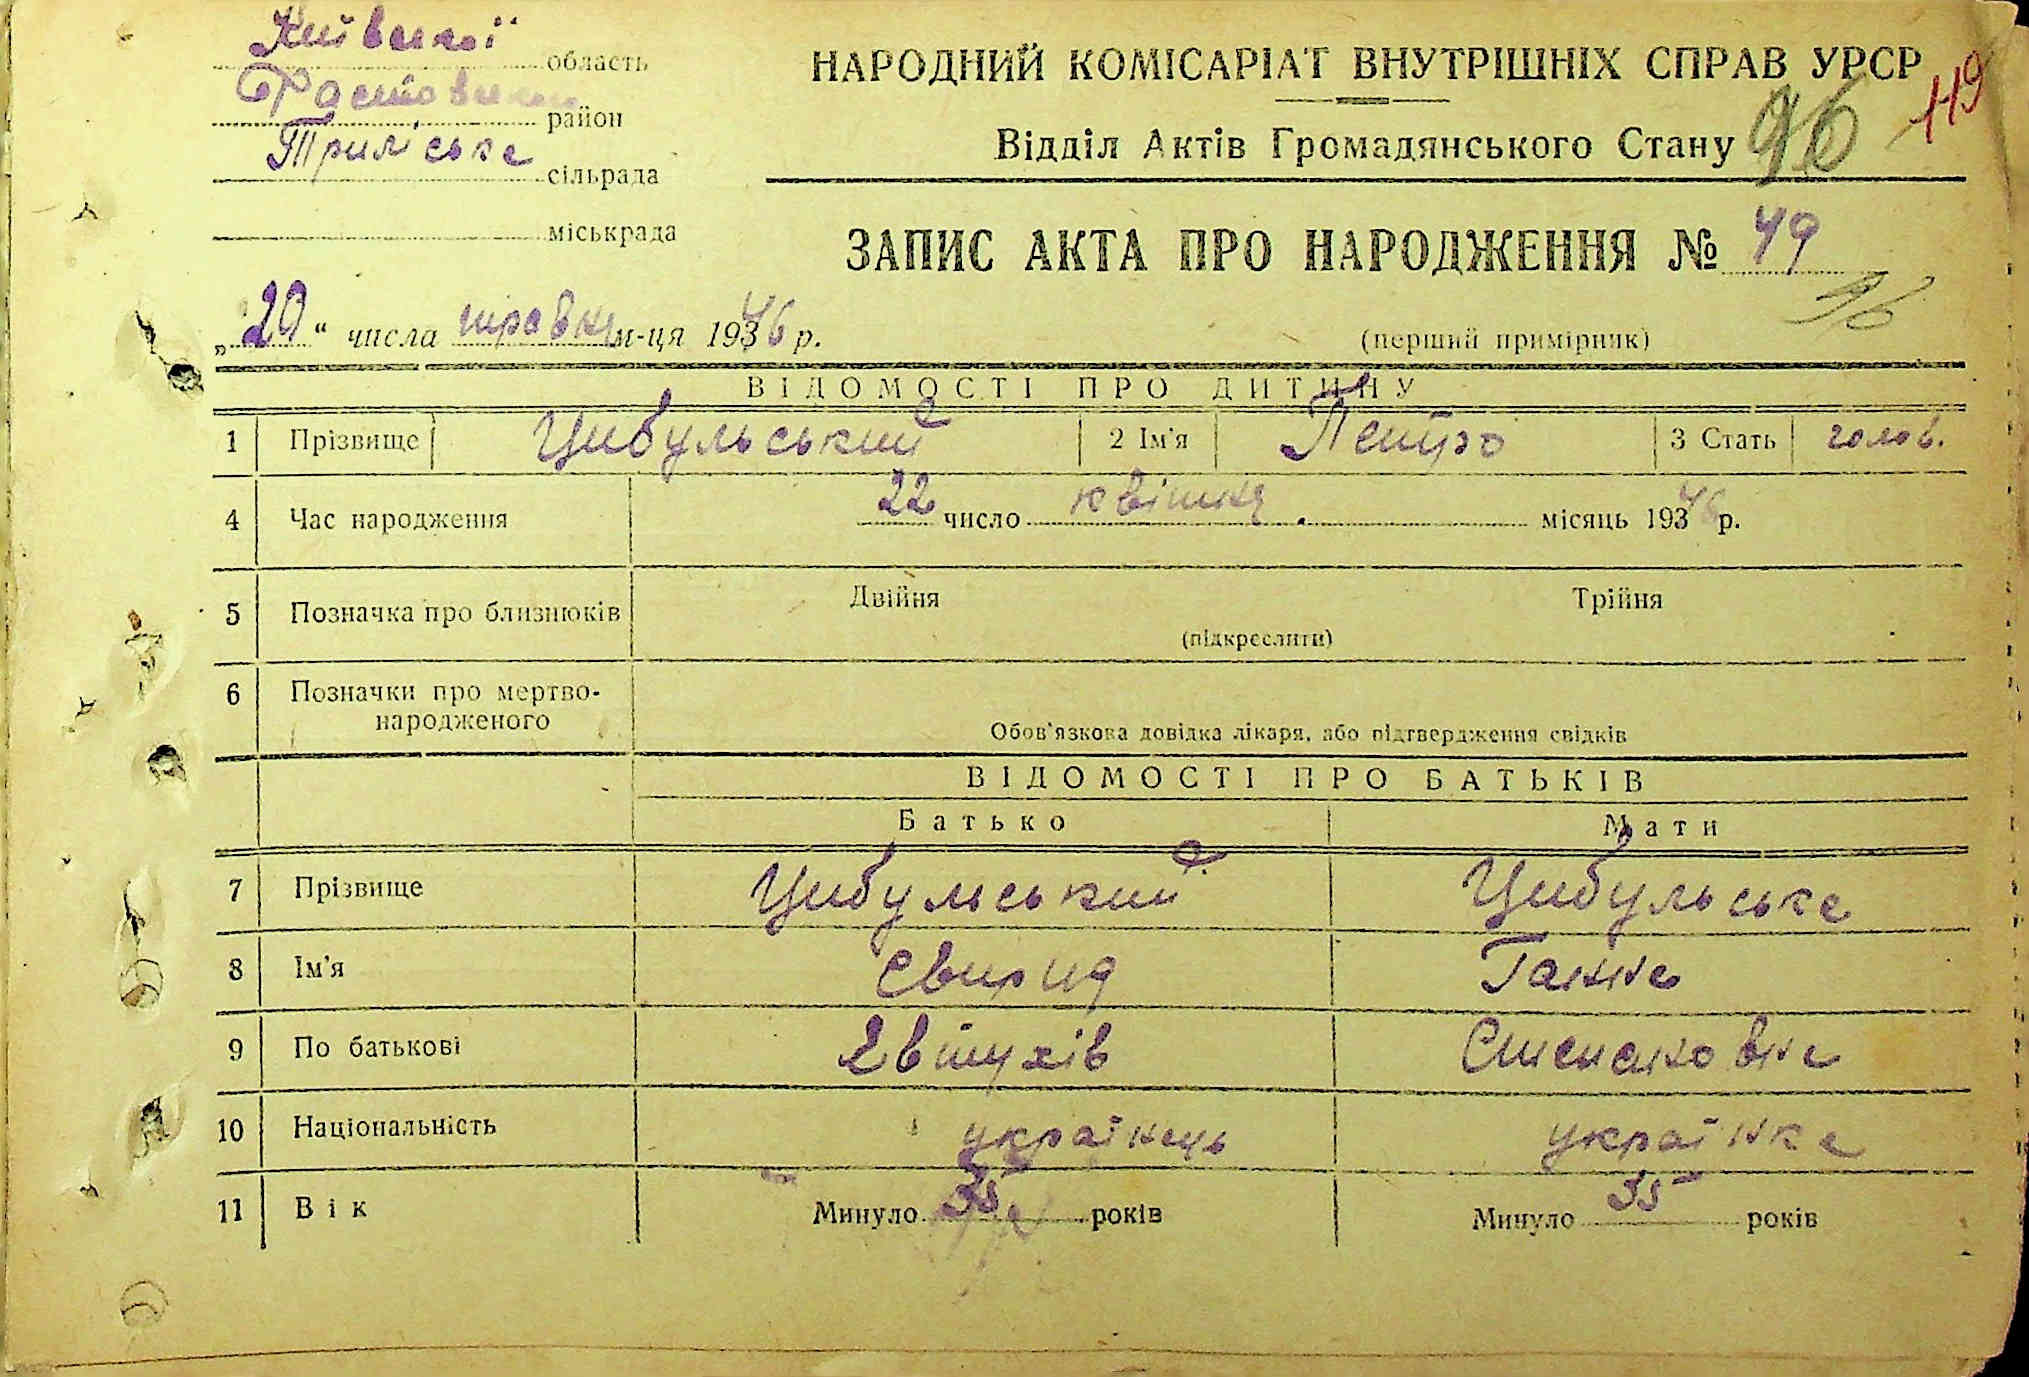 Київської область
Фастовський район
Триліська сільрада
міськрада
НАРОДНИЙ КОМІСАРІАТ ВНУТРІШНІХ СПРАВ УРСР
119
Відділ Актів Громадянського Стану 96
ЗАПИС АКТА ПРО НАРОДЖЕННЯ № 49
96
„29“ числа травня м-ця 1946 р.
(перший примірник)
ВІДОМОСТІ ПРО ДИТИНУ
1 Прізвище Цибульський 2 Ім'я Петро 3 Стать голов.
4 Час народження 22 число квітня місяць 1946 р.
5 Позначка про близнюків Двійня Трійня
(підкреслити)
6 Позначки про мертво-
народженого
Обов'язкова довідка лікаря, або підтвердження свідків
ВІДОМОСТІ ПРО БАТЬКІВ
Батько Мати
7 Прізвище Цибульський Цибульська
8 Ім'я Свирид Ганна
9 По батькові Євтухів Степановна
10 Національність українець українка
11 Вік Минуло 35 років Минуло 35 років